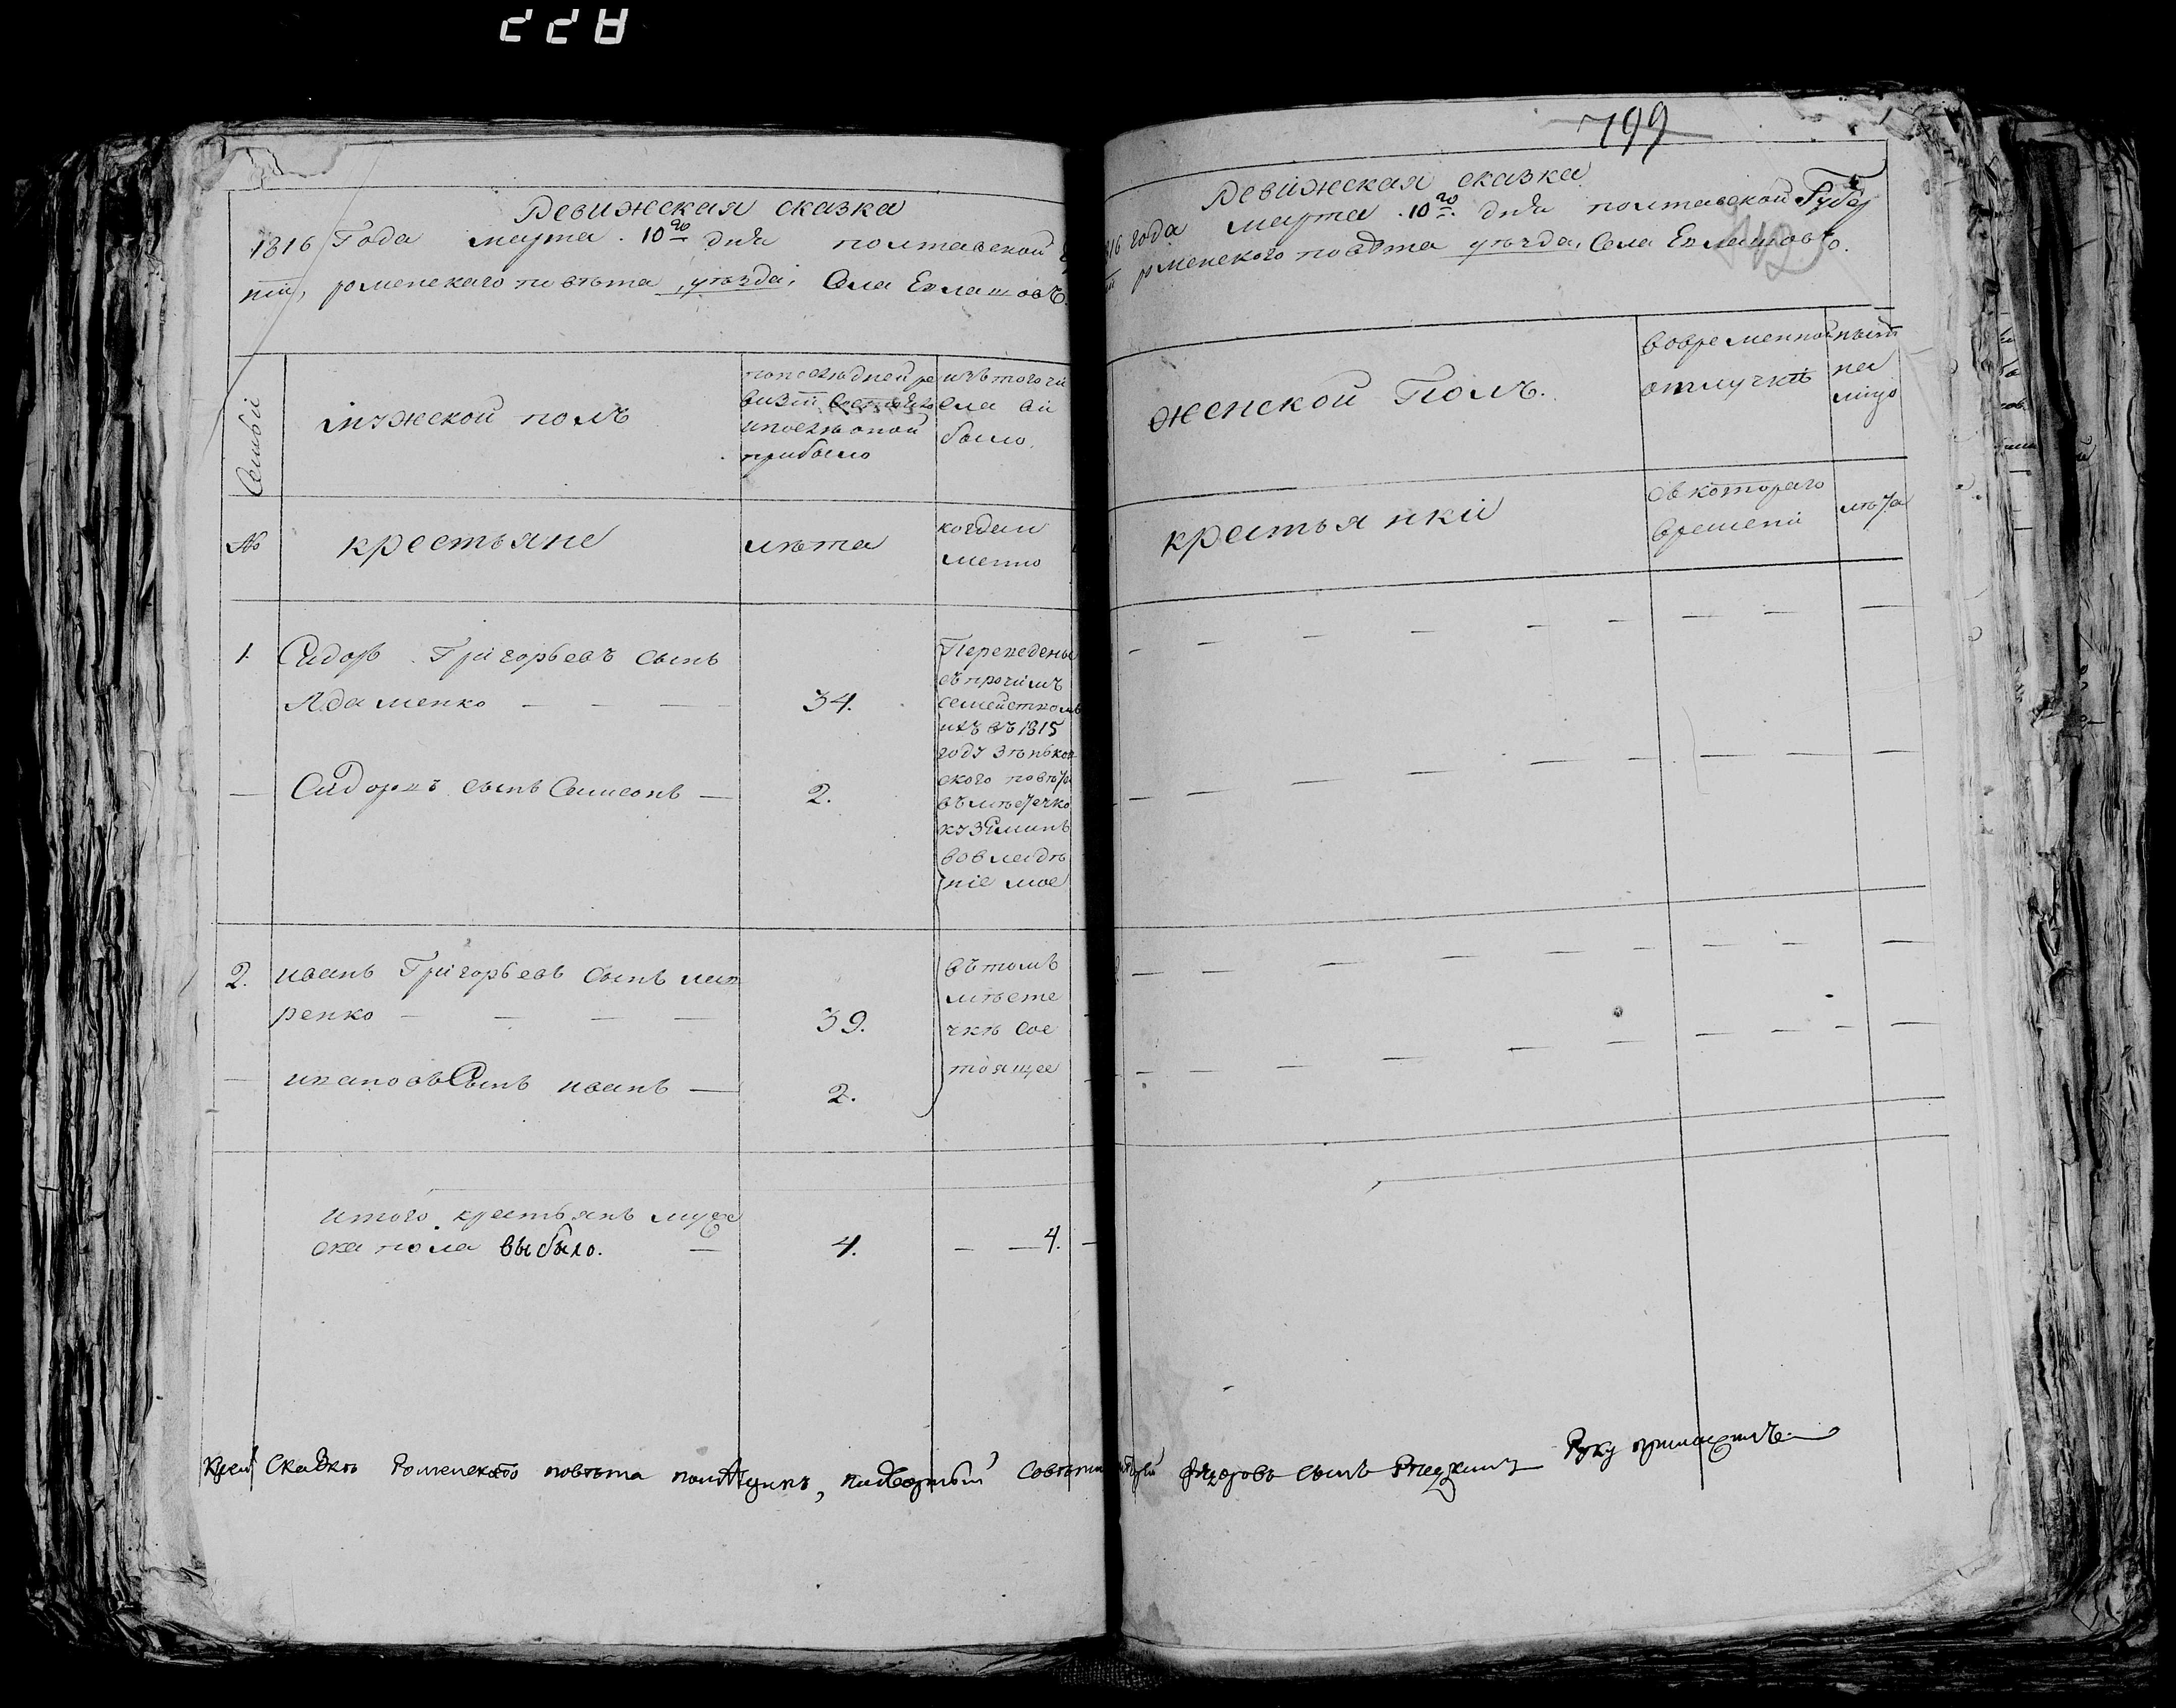 228
Ревижская сказка
1816 Года марта 10го дня полтавской
нии, роменского повѣта уѣзда, Села Евлашовъ
Семьи
мужеской полъ
попослѣдней ре
визіи состояло
ипослѣ оной
прибыло
изъ того чи
сла вы
было
№
крестьяне
лѣта
когда и
менно
1. Сидоръ Григорьевъ сынъ
Адаменко
34.
Переведены
съ прочимъ
семействомъ
ихъ въ 1815
году Зѣньков
ского повѣта
въ мѣстечко
кузѣминъ
вовладѣ
ніе мое
Сидоръ сынъ Самсонъ
2.
2. иванъ Григорьевъ сынъ
ренко
39.
въ томъ
мѣсте
чкѣ сос
тоящее
ивановъ Сынъ иванъ
2.
итого крестьянъ муже
ска пола выбыло.
4. 4.
799
Ревижская сказка
1816 года марта 10го дня полтавской Губер
роменского повѣта уѣзда, Села Евлашовъ.
женской Полъ.
вовременной
отлучкѣ
нынѣ
на
лицо
крестьянки
съ котораго
времени
лѣта
Ксей Сказкѣ Роменского повѣта помѣщикъ, надворный Совѣтникъ Федоровъ сынъ Руку приложилъ